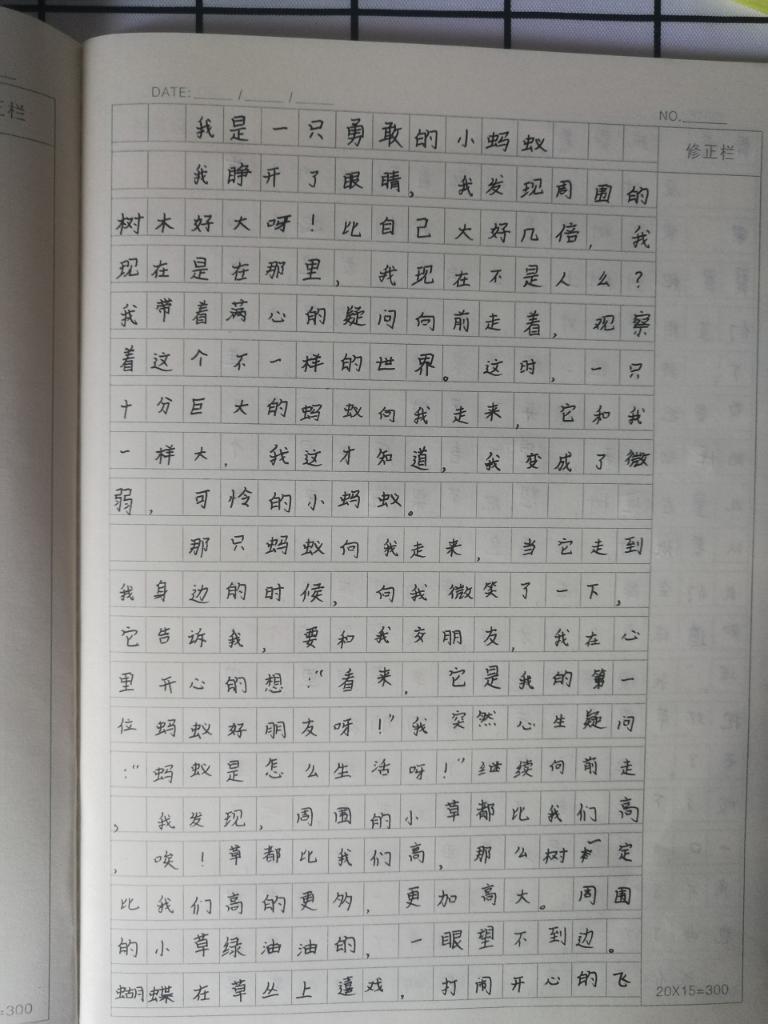 DATE:____/____/____
NO.____
正栏
修正栏
我是一只勇敢的小蚂蚁
我睁开了眼睛，我发现周围的
树木好大呀！比自己大好几倍，我
现在是在那里，我现在不是人么？
我带着满心的疑问向前走着，观察
着这个不一样的世界。这时，一只
十分巨大的蚂蚁向我走来，它和我
一样大，我这才知道，我变成了微
弱，可怜的小蚂蚁。
那只蚂蚁向我走来，当它走到
我身边的时候，向我微笑了一下，
它告诉我，要和我交朋友，我在心
里开心的想：“看来，它是我的第一
位蚂蚁好朋友呀！”我突然心生疑问
：“蚂蚁是怎么生活呀！”继续向前走
，我发现，周围的小草都比我们高
，唉！草都比我们高，那么树一定
比我们高的更多，更加高大。周围
的小草绿油油的，一眼望不到边。
蝴蝶在草丛上嬉戏，打闹开心的飞
20X15=300
=300